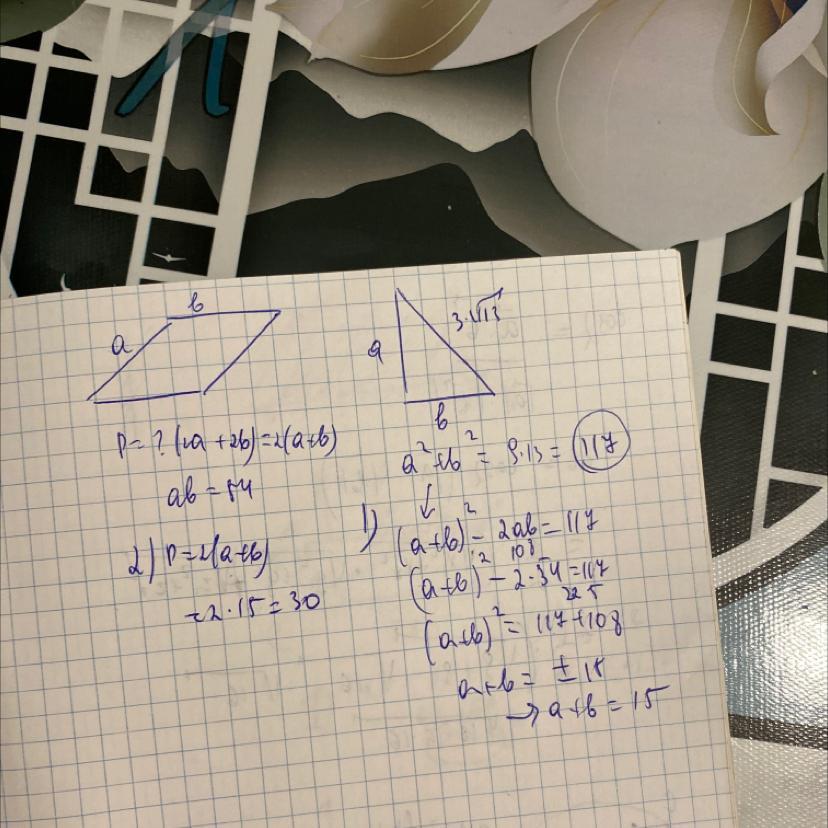 b
a
P = ? (2a + 2b) = 2(a+b)
ab = 54
2) P = 2(a+b)
= 2 · 15 = 30
3·√13
a
b
a² + b² = 9·13 = 117
↓
1) (a+b)² - 2ab = 117
108
(a+b)² - 2·54 = 117
225
(a+b)² = 117 + 108
a+b = ± 15
→ a+b = 15